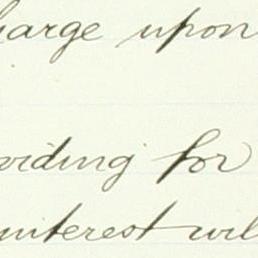 harge upon
viding for
interest wil